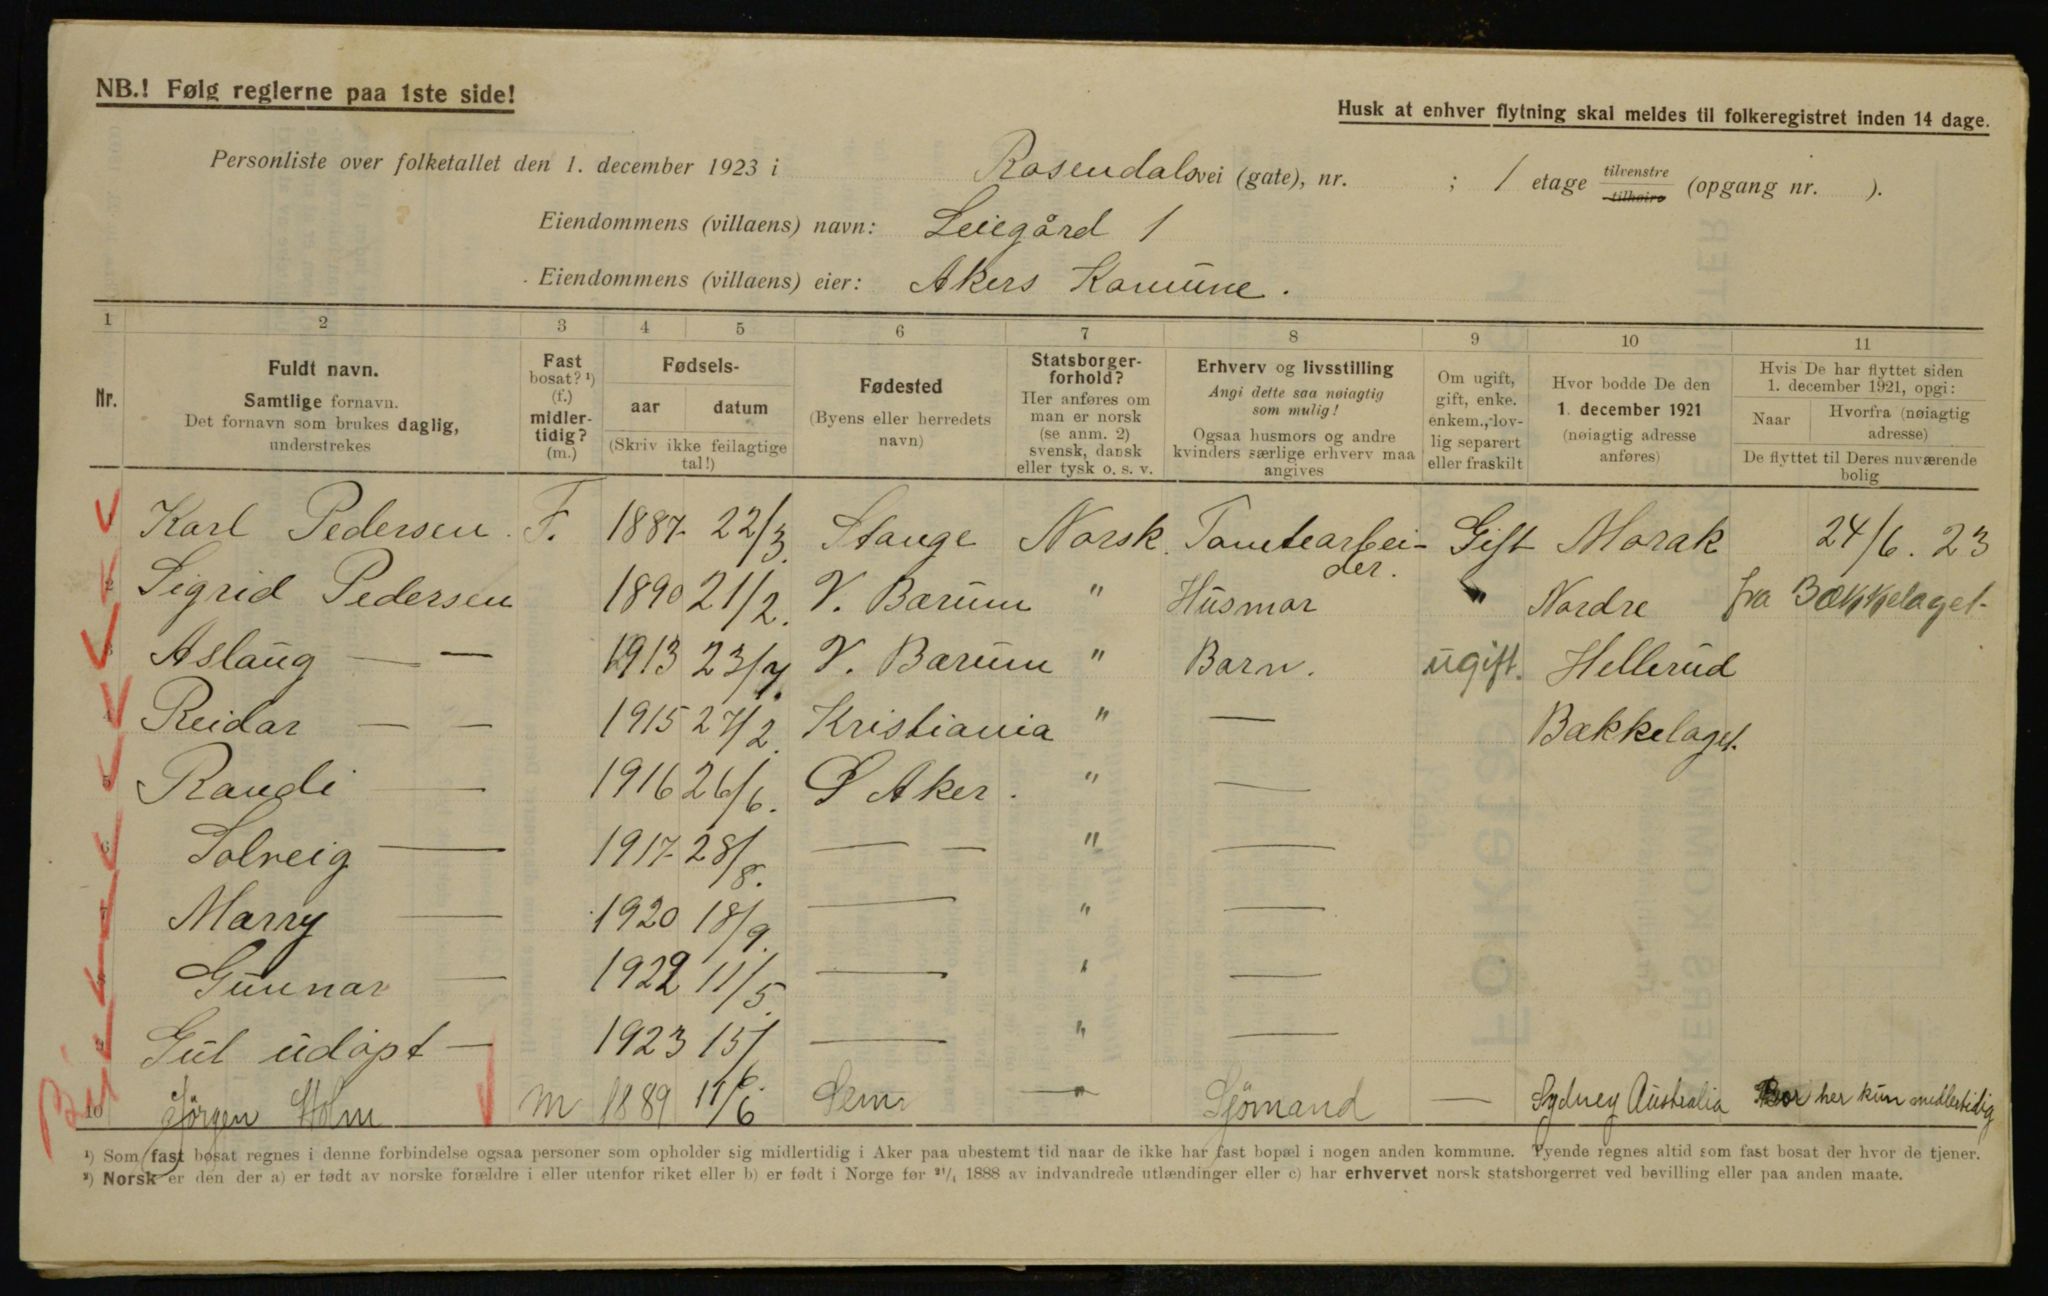 NB.! Følg reglerne paa 1ste side!
Husk at enhver flytning skal meldes til folkeregistret inden 14 dage.
Personliste over folketallet den 1. december 1923 i Rosendalsvei (gate), nr. ; 1 etage tilvenstre tilhøire (opgang nr. ).
Eiendommens (villaens) navn: Leiegård 1
Eiendommens (villaens) eier: Akers Komune.
1 2 3 4 5 6 7 8 9 10 11
Nr.
Fuldt navn.
Samtlige fornavn.
Det fornavn som brukes daglig,
understrekes
Fast
bosat? ¹)
(f.)
midler-
tidig?
(m.)
Fødsels-
aar datum
(Skriv ikke feilagtige
tal!)
Fødested
(Byens eller herredets
navn)
Statsborger-
forhold?
Her anføres om
man er norsk
(se anm. 2)
svensk, dansk
eller tysk o. s. v.
Erhverv og livsstilling
Angi dette saa nøiagtig
som mulig!
Ogsaa husmors og andre
kvinders særlige erhverv maa
angives
Om ugift,
gift, enke.
enkem., lov-
lig separert
eller fraskilt
Hvor bodde De den
1. december 1921
(nøiagtig adresse
anføres)
Hvis De har flyttet siden
1. december 1921, opgi:
Naar
Hvorfra (nøiagtig
adresse)
De flyttet til Deres nuværende
bolig
1 Karl Pedersen. F. 1887 22/3. Stange Norsk. Tomtearbei- der. Gift Morak 24/6. 23
2 Sigrid Pedersen 1890 21/2. V. Bærum " Husmor " Nordre fra Bækkelaget
3 Aslaug — — 1913 23/7. V. Bærum " Barn. ugift. Hellerud
4 Reidar — — 1915 27/2. Kristiania " — Bækkelaget.
5 Randi — 1916 26/6. Aker. " —
6 Solveig — 1917 28/8. — — " —
7 Marry — 1920 18/9. — " —
8 Gunnar — 1922 11/5. — " —
9 Gut udöpt — 1923 15/ — " —
10 Jörgen Holm m 1889 11/6 Sem — " Sjömand — Sydney Australia Bor her kun midlertidig
¹) Som fast bosat regnes i denne forbindelse ogsaa personer som opholder sig midlertidig i Aker paa ubestemt tid naar de ikke har fast bopæl i nogen anden kommune. Tyende regnes altid som fast bosat der hvor de tjener.
²) Norsk er den der a) er født av norske forældre i eller utenfor riket eller b) er født i Norge før ²¹/₁ 1888 av indvandrede utlændinger eller c) har erhvervet norsk statsborgerret ved bevilling eller paa anden maate.